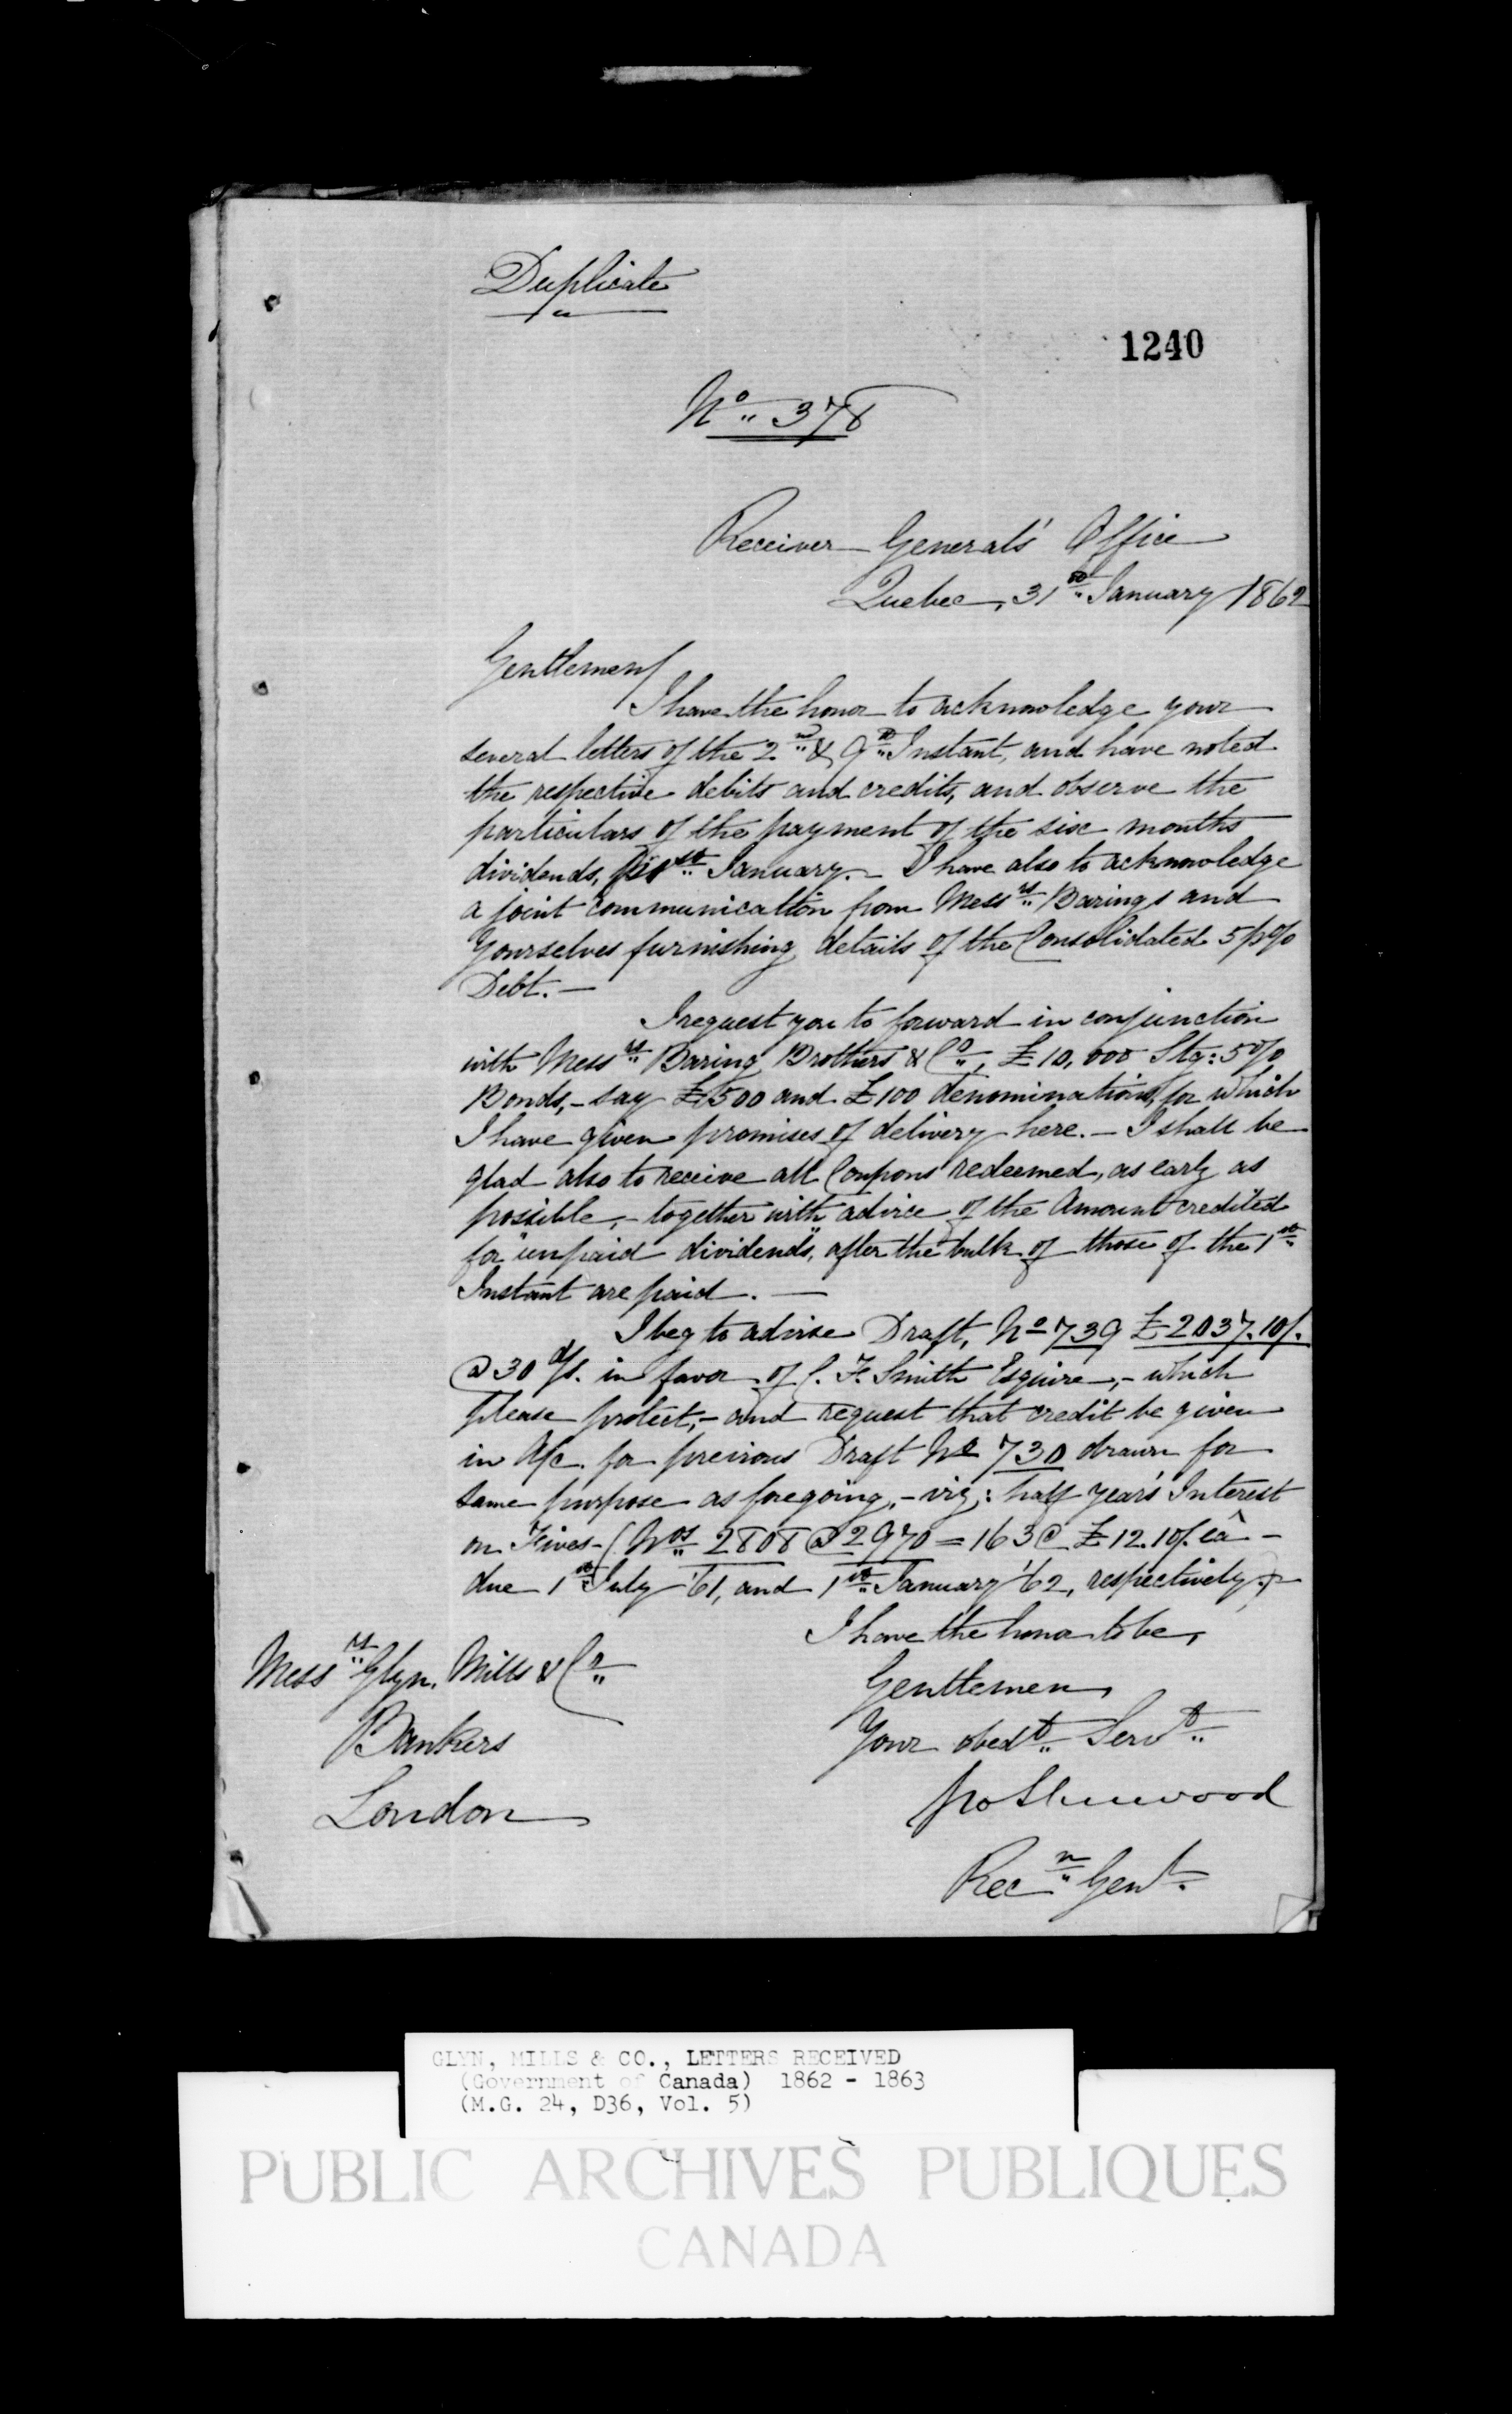 Duplicate
1240
No 378
Receiver Generals' Office
Quebec, 31st January 1862
Gentlemen/
I have the honor to acknowledge your
several letters of the 2nd & 9th Instant, and have noted
the respective debits and credits, and observe the
particulars of the payment of the six months
dividends, 1st January. - I have also to acknowledge
a joint communication from Messrs Barings and
Yourselves furnishing details of the Consolidated 5 p%
Debt. -
I request you to forward in conjunction
with Messrs Baring Brothers & Co, £10,000 Stg: 5%
Bonds, - say £500 and £100 denominations, for which
I have given promises of delivery here. - I shall be
glad also to receive all Coupons redeemed, as early as
possible, - together with advice of the Amount credited
for "unpaid dividends", after the bulk of those of the 1st
Instant are paid. -
I beg to advise Draft, No 739 £2037.10/.
@ 30 d/s. in favor of C. F. Smith Esquire, - which
please protect, - and request that credit be given
in A/c. for previous Draft No 730 drawn for
same purpose as foregoing, - viz: half year's Interest
on Fives - (Nos 2808 @ 2970 = 163 @ £12.10/. ea -
due 1st July '61, and 1st January '62, respectively.)
I have the honor to be,
Gentlemen
Your obedt Servt
Messrs Glyn, Mills & Co
Bankers
London
Sherwood
Recr Genl
GLYN, MILLS & CO., LETTERS RECEIVED
(Government of Canada) 1862 - 1863
(M.G. 24, D36, Vol. 5)
PUBLIC ARCHIVES PUBLIQUES
CANADA